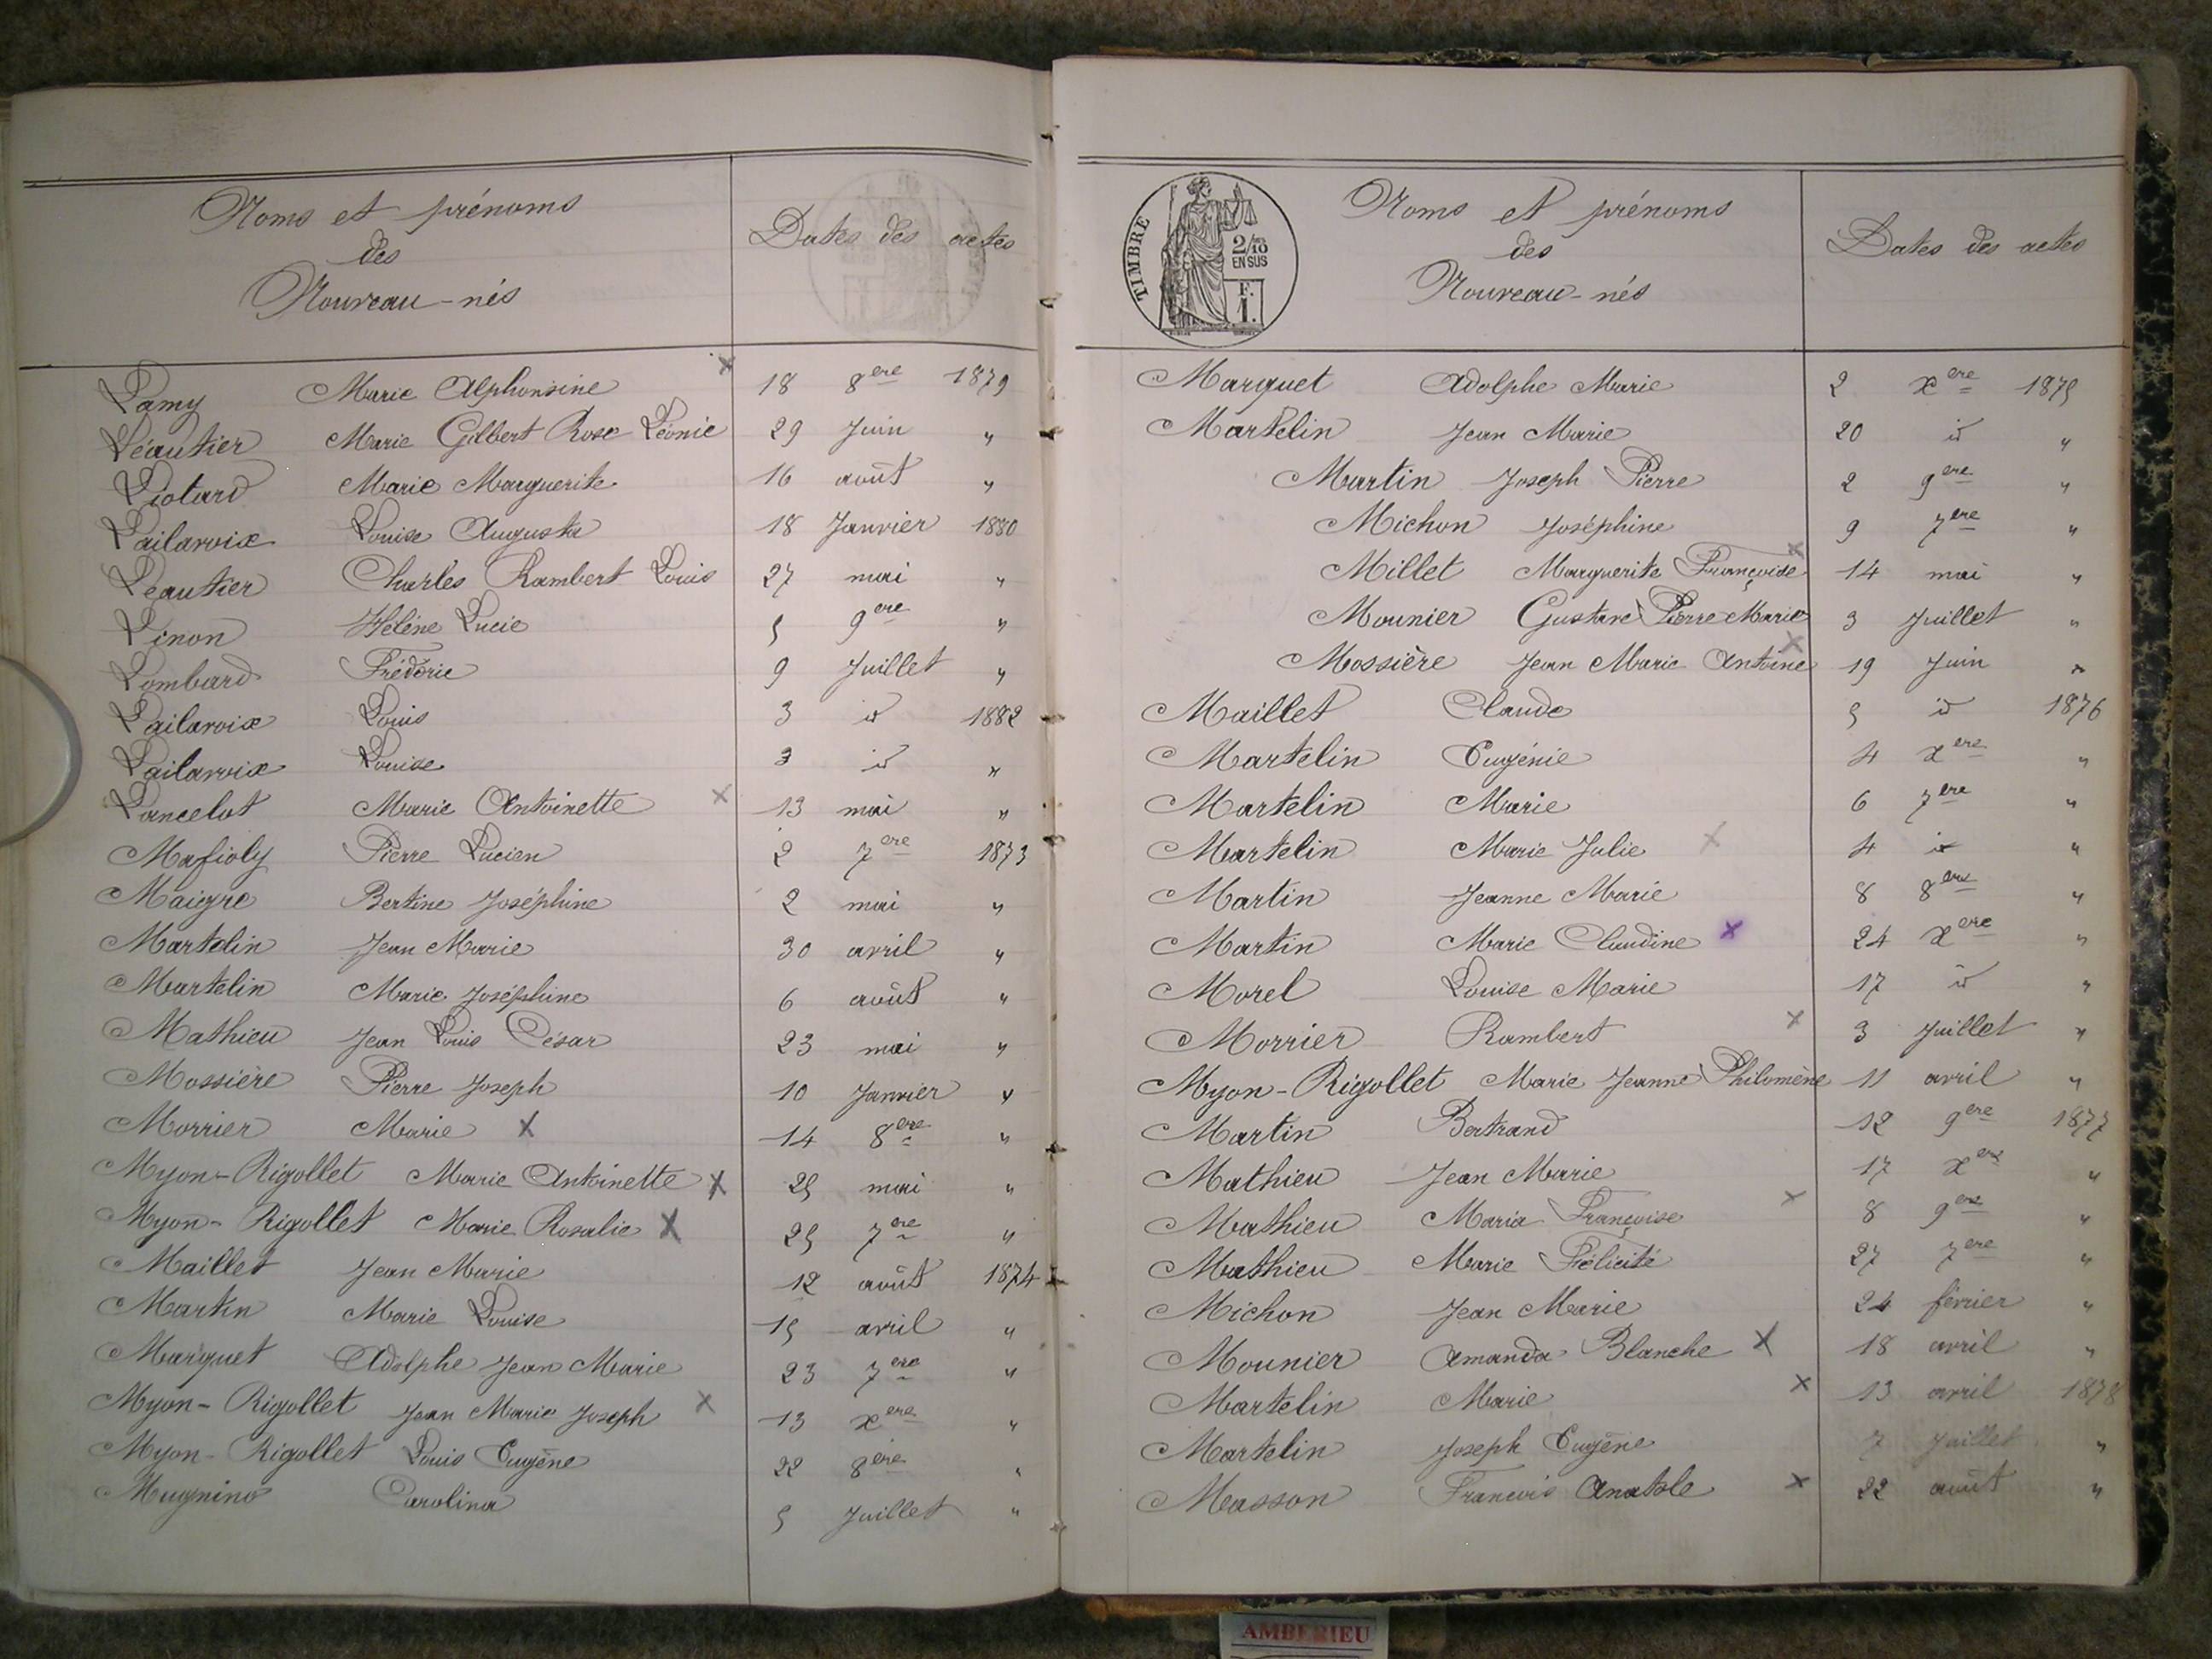 Noms et prénoms
des
Nouveau-nés
Dates des actes
Lamy Marie Alphonsine x 18 8ere 1879
Léautier Marie Gilbert Rose Léonie 29 Juin "
Liotard Marie Marguerite 16 août "
Lailavoix Louise Augusta 18 Janvier 1880
Léautier Charles Rambert Louis 27 mai "
Linon Hélène Lucie 5 9ere "
Lombard Frédéric 9 Juillet "
Lailavoix Louis 3 id 1882
Lailavoix Louise 3 id "
Lancelot Marie Antoinette x 13 mai "
Mafioly Pierre Lucien 2 7ere 1873
Maigre Bertine Joséphine 2 mai "
Martelin Jean Marie 30 avril "
Martelin Marie Joséphine 6 août "
Mathieu Jean Louis César 23 mai "
Mossière Pierre Joseph 10 Janvier "
Morrier Marie x 14 8ere "
Myon-Rigollet Marie Antoinette x 25 mai "
Myon-Rigollet Marie Rosalie x 25 7ere "
Maillet Jean Marie 12 août 1874
Martin Marie Louise 15 avril "
Marguet Adolphe Jean Marie 23 7ere "
Myon-Rigollet Jean Marie Joseph x 13 xere "
Myon-Rigollet Louis Eugène 22 8ere "
Mugnino Carolina 5 Juillet "
TIMBRE
2/10
EN SUS
F.
1.
Noms et prénoms
des
Nouveau-nés
Dates des actes
Marguet Adolphe Marie 2 xere 1875
Martelin Jean Marie 20 id "
Martin Joseph Pierre 2 9ere "
Michon Joséphine 9 7ere "
Millet Marguerite Françoise x 14 mai "
Mounier Gustave Pierre Marie 3 Juillet "
Mossière Jean Marie Antoine x 19 Juin "
Maillet Claude 5 id 1876
Martelin Eugénie 4 xere "
Martelin Marie 6 7ere "
Martelin Marie Julie x 4 id "
Martin Jeanne Marie 8 8ere "
Martin Marie Claudine x 24 xere "
Morel Louise Marie 17 id "
Morrier Rambert x 3 Juillet "
Myon-Rigollet Marie Jeanne Philomène 11 avril "
Martin Bertrand 12 9ere 1877
Mathieu Jean Marie 17 xere "
Mathieu Maria Françoise x 8 9ere "
Mathieu Marie Félicité 27 7ere "
Michon Jean Marie 24 février "
Mounier Amanda Blanche x 18 avril "
Martelin Marie x 13 avril 1878
Martelin Joseph Eugène 7 Juillet "
Masson François Anatole x 22 août "
AMBERIEU